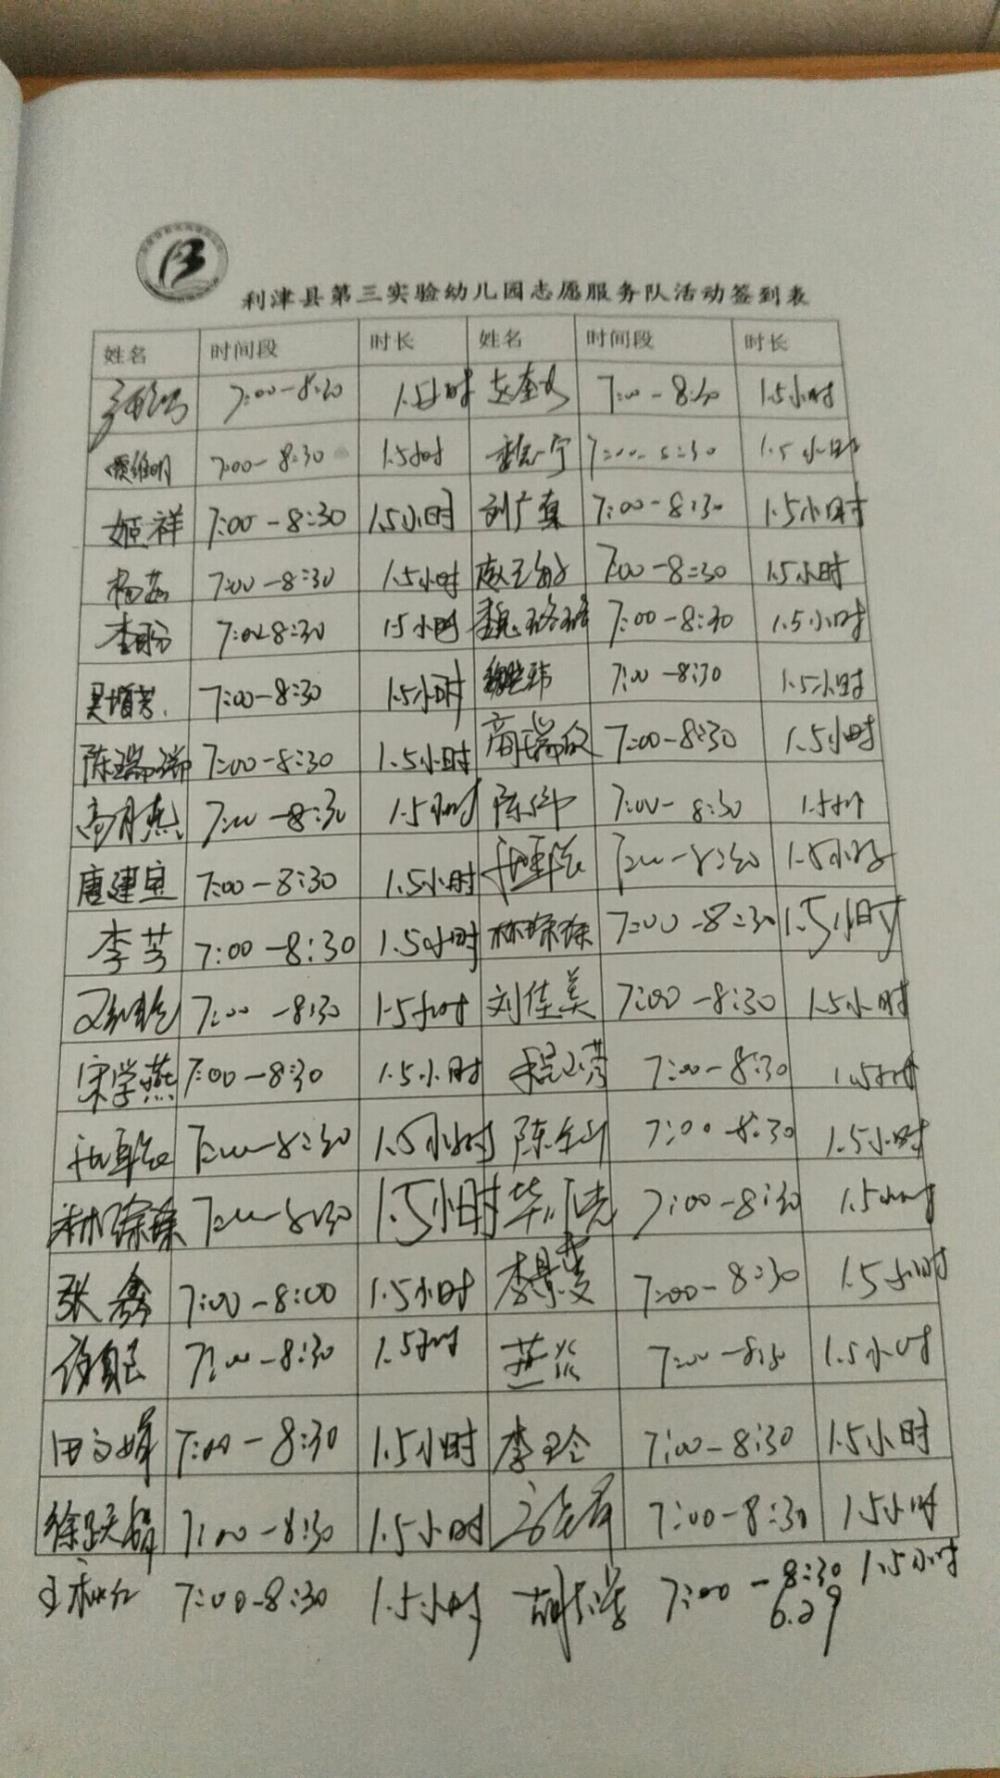 利津县第三实验幼儿园志愿服务队活动签到表
姓名 时间段 时长 姓名 时间段 时长
7:00-8:30 1.5小时 7:00-8:30 1.5小时
贾维明 7:00-8:30 1.5小时 7:00-8:30 1.5小时
姬祥 7:00-8:30 1.5小时 刘广真 7:00-8:30 1.5小时
杨茹 7:00-8:30 1.5小时 赵玉敏 7:00-8:30 1.5小时
李盼 7:00-8:30 1.5小时 魏珞珞 7:00-8:30 1.5小时
7:00-8:30 1.5小时 7:00-8:30 1.5小时
陈瑞瑞 7:00-8:30 1.5小时 商瑞欣 7:00-8:30 1.5小时
高月燕 7:00-8:30 1.5小时 7:00-8:30 1.5小时
唐建宝 7:00-8:30 1.5小时 7:00-8:30 1.5小时
李芳 7:00-8:30 1.5小时 林琼琼 7:00-8:30 1.5小时
7:00-8:30 1.5小时 刘佳美 7:00-8:30 1.5小时
宋学燕 7:00-8:30 1.5小时 7:00-8:30 1.5小时
7:00-8:30 1.5小时 7:00-8:30 1.5小时
林琼琼 7:00-8:30 1.5小时 7:00-8:30 1.5小时
张鑫 7:00-8:00 1.5小时 李景雯 7:00-8:30 1.5小时
7:00-8:30 1.5小时 7:00-8:30 1.5小时
田文娟 7:00-8:30 1.5小时 李玲 7:00-8:30 1.5小时
徐跃娟 7:00-8:30 1.5小时 7:00-8:30 1.5小时
王秋红 7:00-8:30 1.5小时 7:00-8:30 1.5小时
6.29